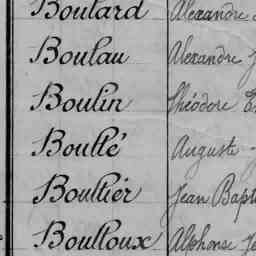 Boulard Alexandre
Boulau Alexandre J
Boulin Théodore E
Boullé Auguste
Boullier Jean Bapt
Boulloux Alphonse Je